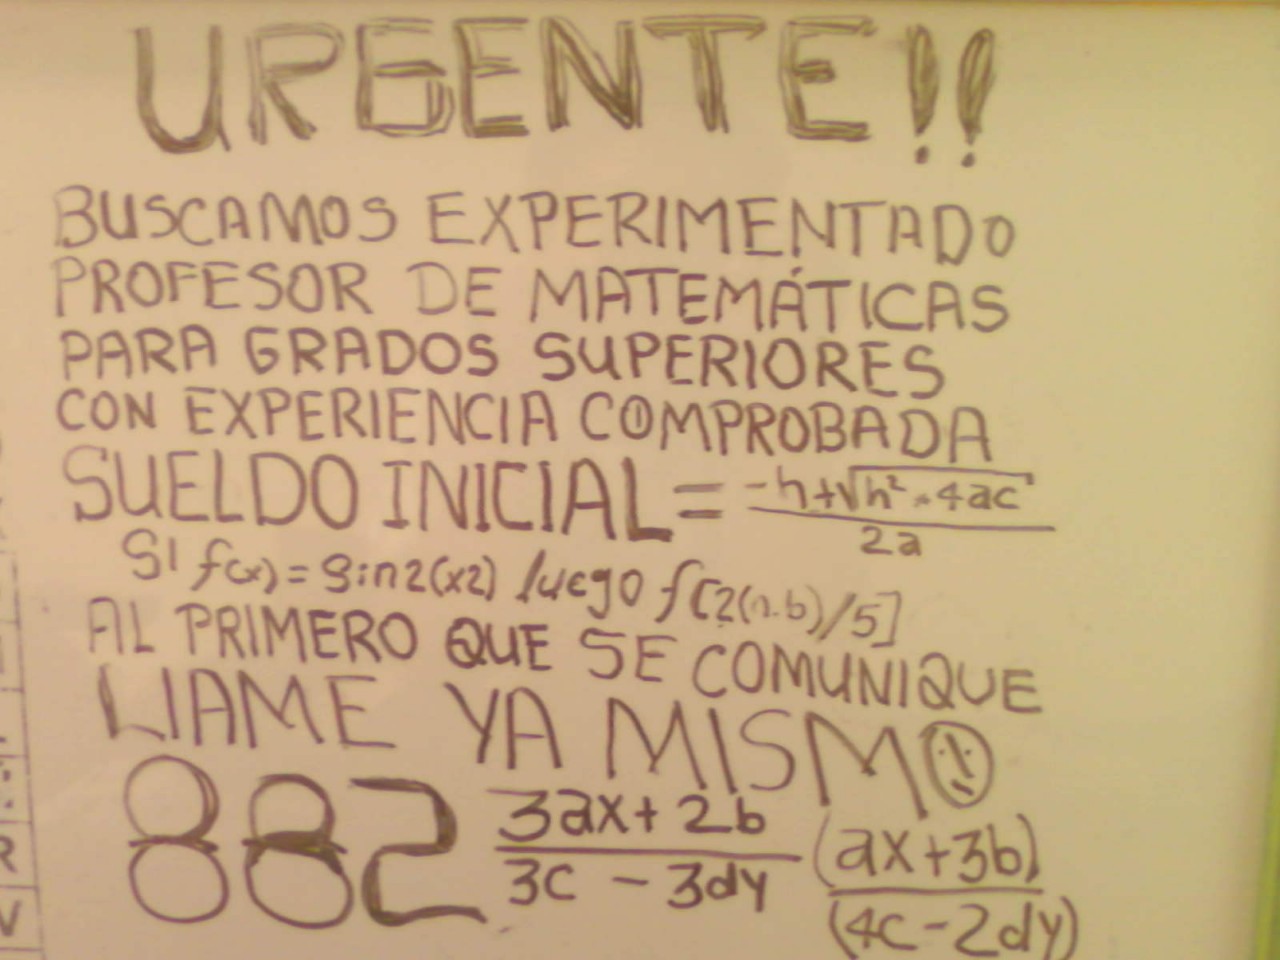 URGENTE!!
BUSCAMOS EXPERIMENTADO
PROFESOR DE MATEMÁTICAS
PARA GRADOS SUPERIORES
CON EXPERIENCIA COMPROBADA
SUELDO INICIAL = -h+√h² - 4ac / 2a
SI f(x) = Sin2(x2) luego f[2(n.b)/5]
AL PRIMERO QUE SE COMUNIQUE
LLAME YA MISMO
882 3ax+2b / 3c - 3dy (ax+3b) / (4c-2dy)
R
V